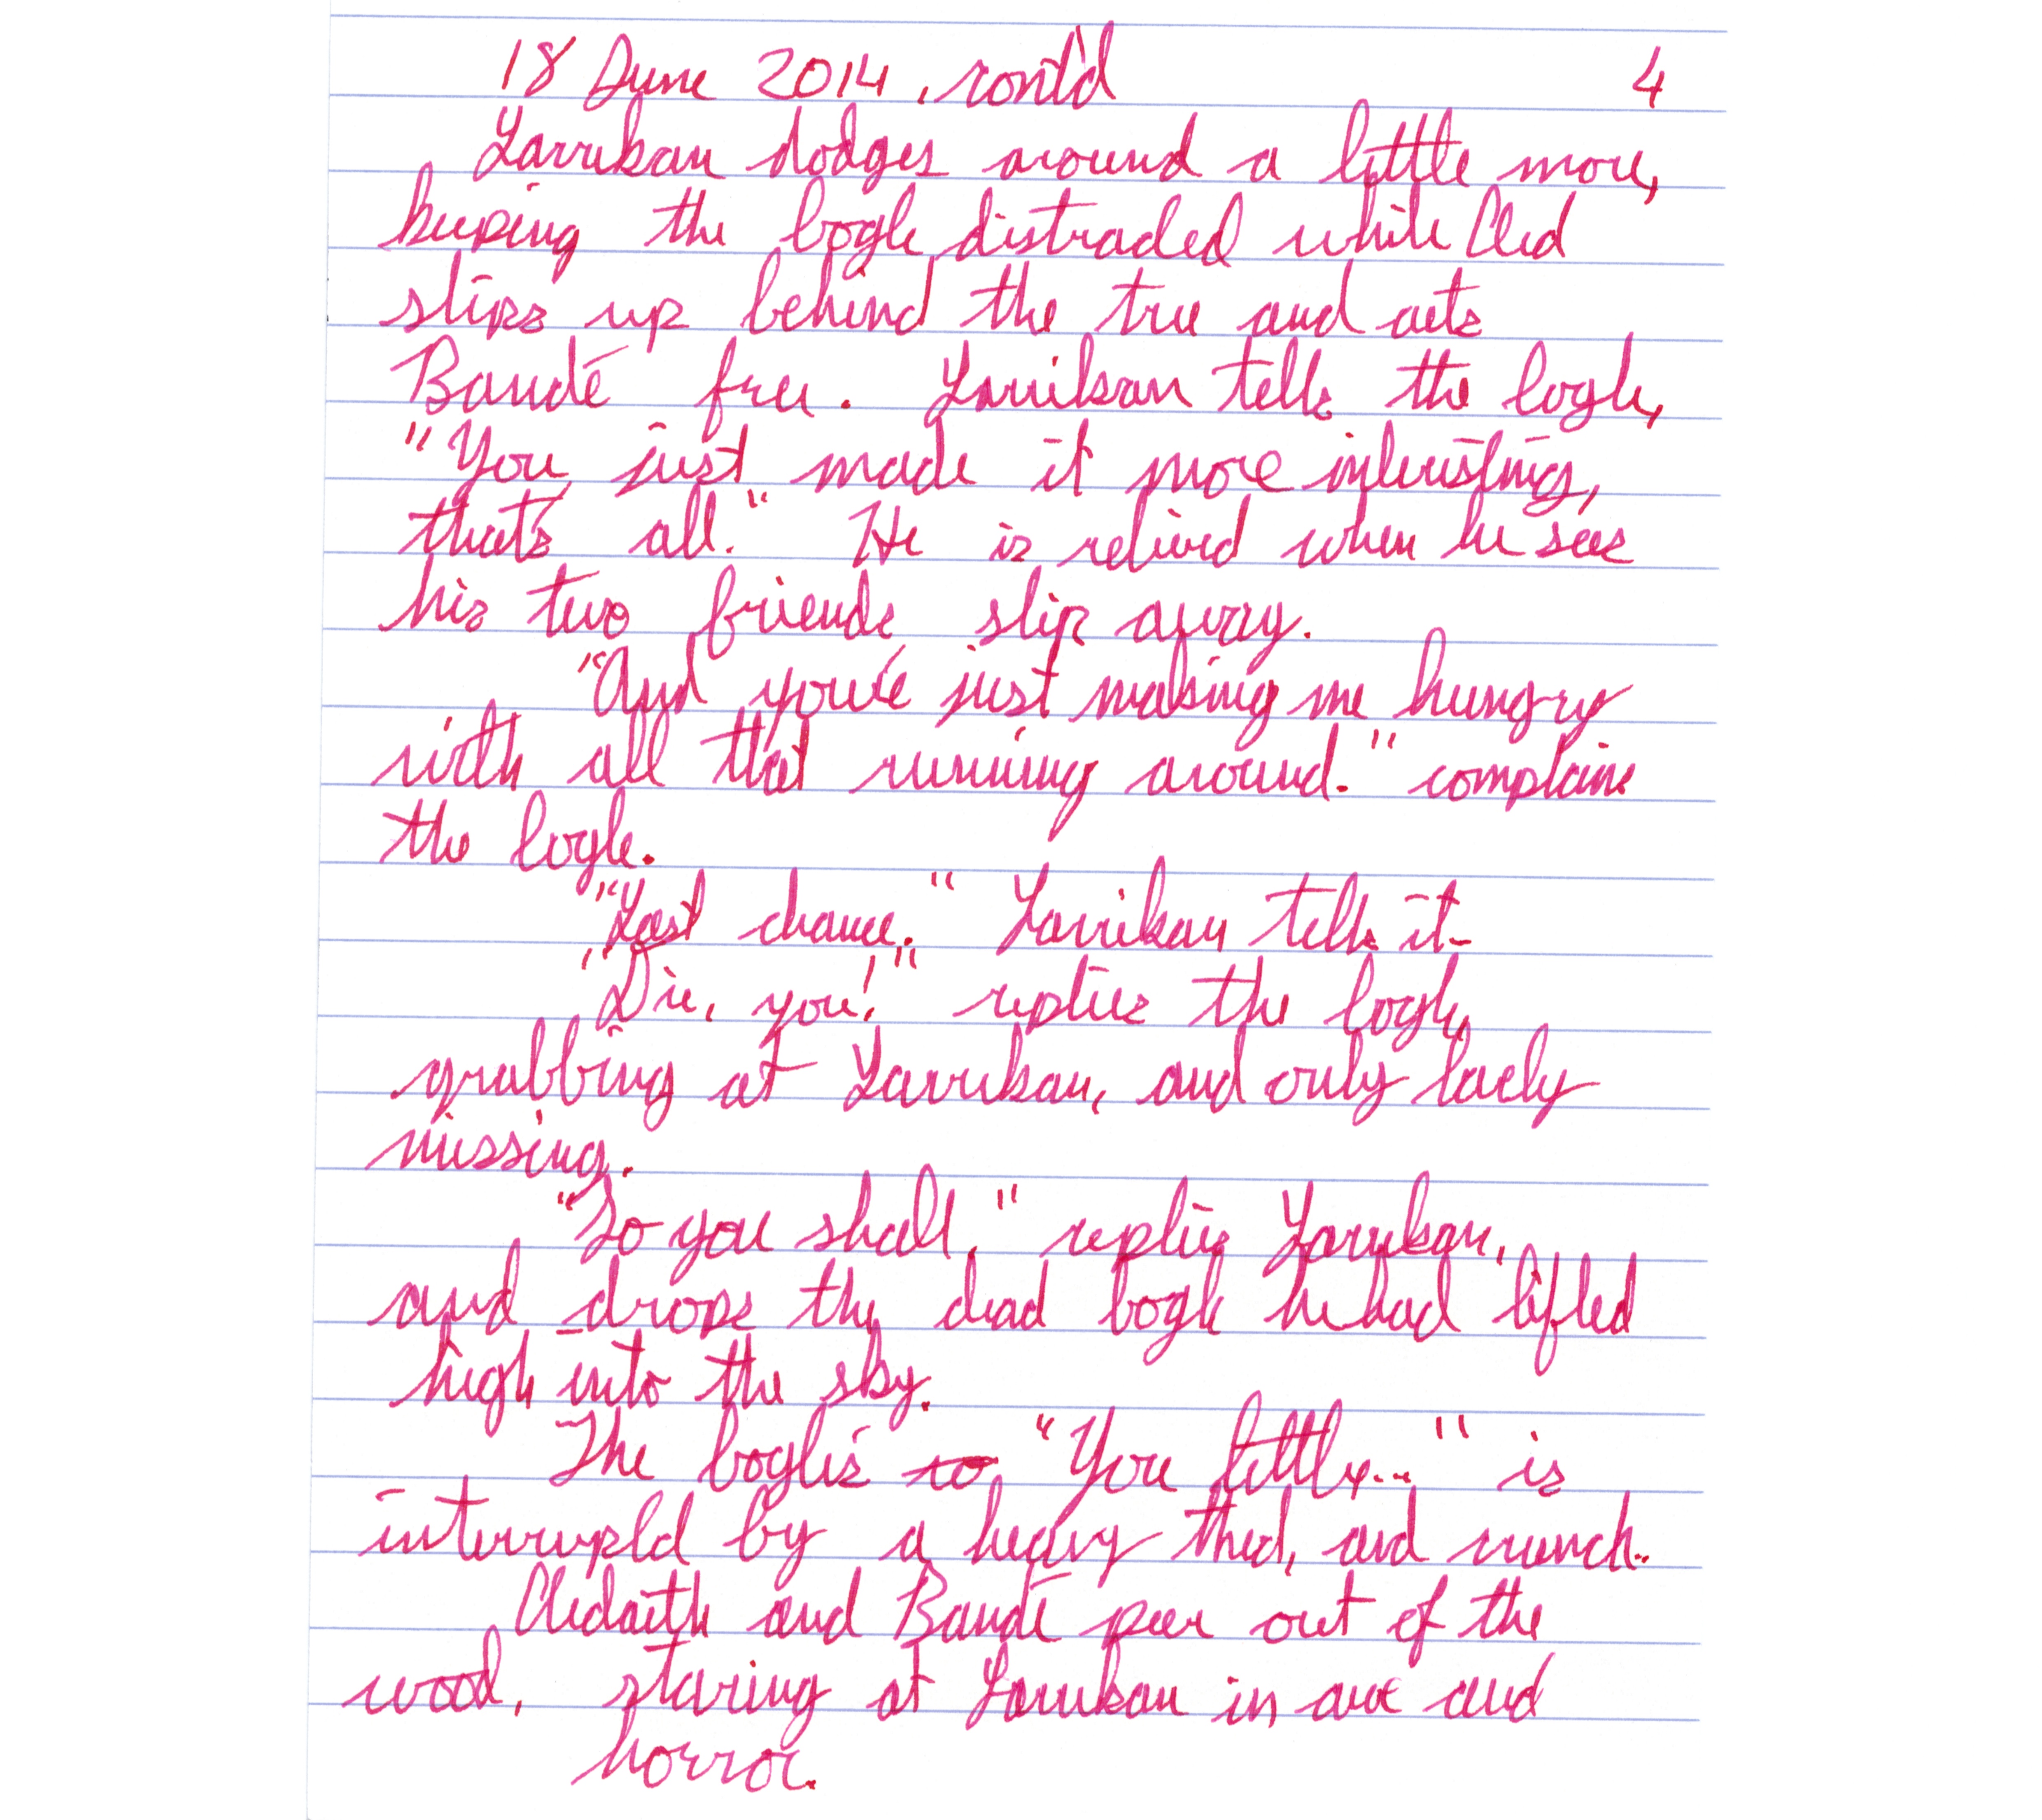 18 June 2014, cont'd 4
Larrikan dodges around a little more,
keeping the bogle distracted while Cled
slips up behind the tree and cuts
Baudé free. Larrikan tells the bogle,
"You just made it more interesting,
that's all." He is relived when he sees
his two friends slip away.
"And you're just making me hungry
with all that running around." complains
the bogle.
"Last chance." Larrikan tells it.
"Die, you!" replies the bogle,
grabbing at Larrikan, and only barely
missing.
"So you shall," replies Larrikan,
and drops the dead bogle he had lifted
high into the sky.
The bogle's to "You little..." is
interrupted by a heavy thud, and crunch.
Cledaith and Baudé peer out of the
wood, staring at Larrikan in awe and
horror.